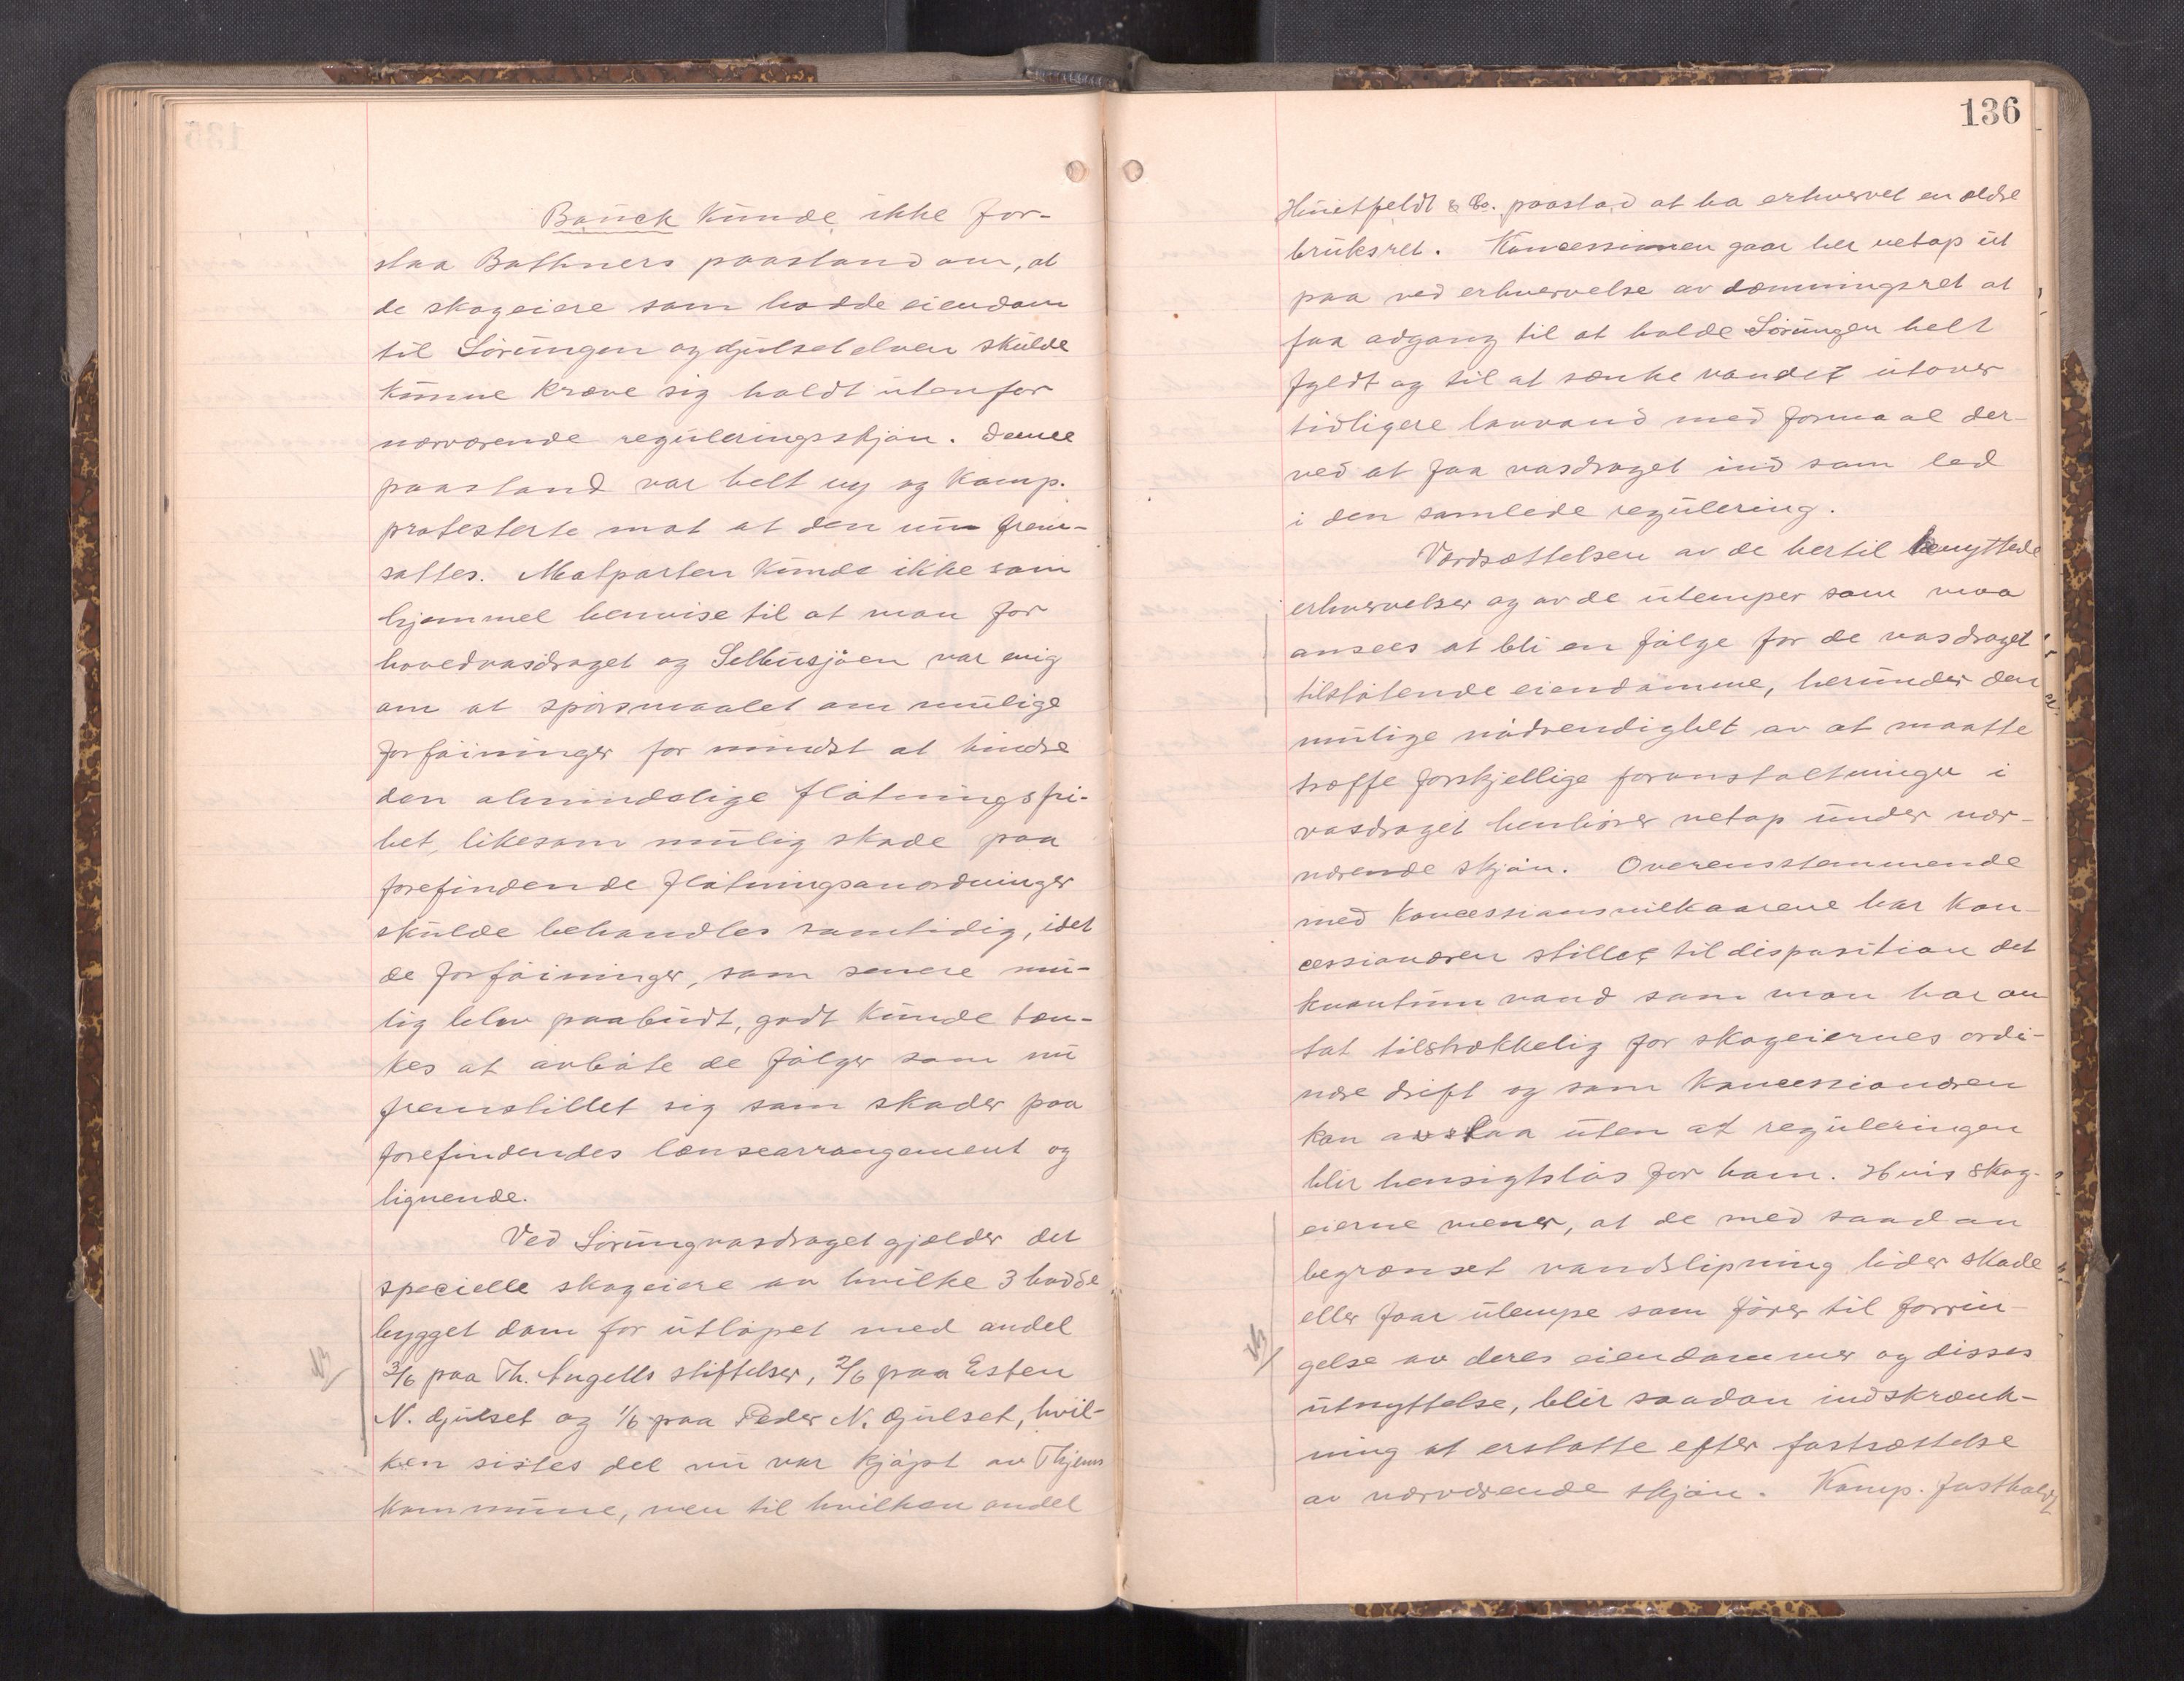 Bauck kunde ikke for-
staa Bathners paastand om, at
de skogeiere som hadde eiendom
til Sørungen og Djulselelven skulde
kunne kræve sig holdt utenfor
nærværende reguleringsskjøn. Denne
paastand var helt ny og Komp.
protesterte mot at den nu frem-
sattes. Motparten kunde ikke som
hjemmel henvise til at man for
hovedvasdraget og Selbusjøen var enig
om at spørsmaalet om mulige
forføininger for mindst at hindre
den almindelige fløtningsfri-
het, likesom mulig skade paa
forefindende fløtningsanordninger
skulde behandles samtidig, idet
de forføininger, som senere mu-
lig blev paabudt, godt kunde tæn-
kes at avbøte de følger som nu
fremstillet sig som skader paa
forefindendes lænsearrangement og
lignende.
Ved Sørungvasdraget gjælder det
specielle skogeiere av hvilke 3 hadde
bygget dam for utløpet med andel
3/6 paa Th. Angells stiftelser, 2/6 paa Esten
NB
N. Djulset og 1/6 paa Peder N. Djulset, hvil-
ken sistes del nu var kjøpt av Thjems
kommune, men til hvilken andel
136
Huitfeldt & Co. paastod at ha erhvervet en ældre
bruksret. Koncessionen gaar her netop ut
paa ved erhvervelse av dæmningsret at
faa adgang til at holde Sørungen helt
fyldt og til at sænke vandet utover
tidligere lavvand med formaal der-
ved at faa vasdraget ind som led
i den samlede regulering.
Værdsættelsen av de hertil benyttede
erhvervelser og av de ulemper som maa
ansees at bli en følge for de vasdraget
tilstøtende eiendomme, herunder den
mulige nødvendighet av at maatte
træffe forskjellige foranstaltninger i
vasdraget henhører netop under nær-
værende skjøn. Overensstemmende
med koncessionsvilkaarene har kon-
cessionæren stillet til disposition det
kvantum vand som man har an-
tat tilstrækkelig for skogeiernes ordi-
nære drift og som koncessionæren
kan avstaa uten at reguleringen
blir hensigtsløs for ham. Hvis skog-
eierne mener, at de med saadan
begrænset vandslipning lider skade
eller faar ulempe som fører til forrin-
NB
gelse av deres eiendommer og disses
utnyttelse, blir saadan indskrænk-
ning at erstatte efter fastsættelse
av nærværende skjøn. Komp. fastholdt